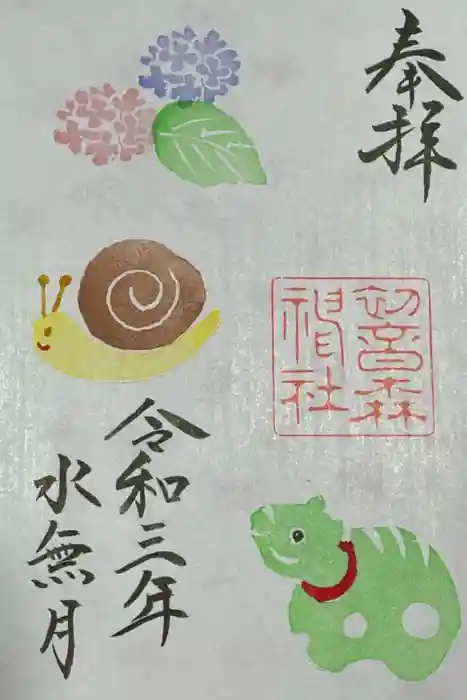 奉拝
初音森
神社
令和三年
水無月